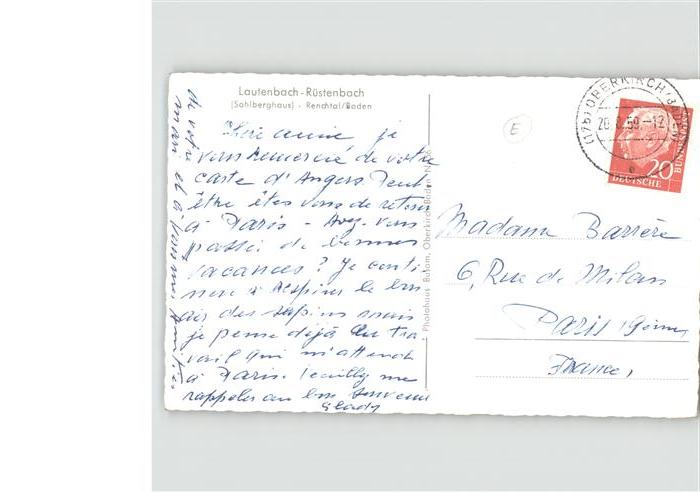 Lautenbach - Rüstenbach
(Sohlberghaus) - Renchtal/Baden
Chère amie je
vous remercie de votre
carte d'Angers Peut
être êtes vous de retour
à Paris - Avez-vous
passé de bonnes
vacances ? Je conti
nue à respirer le bon
air des sapins mais
je pense déjà au tra
vail qui m'attend
à Paris. Veuillez me
rappeler au bon souvenir
de votre
mari et à
Photohaus Busam, Oberkirch/Baden
E
(17b) OBERKIRCH (BADEN)
59.-12
20
DEUTSCHE
BUNDESPOST
Madame Barrère
6, Rue de Milan
Paris (9ème)
France